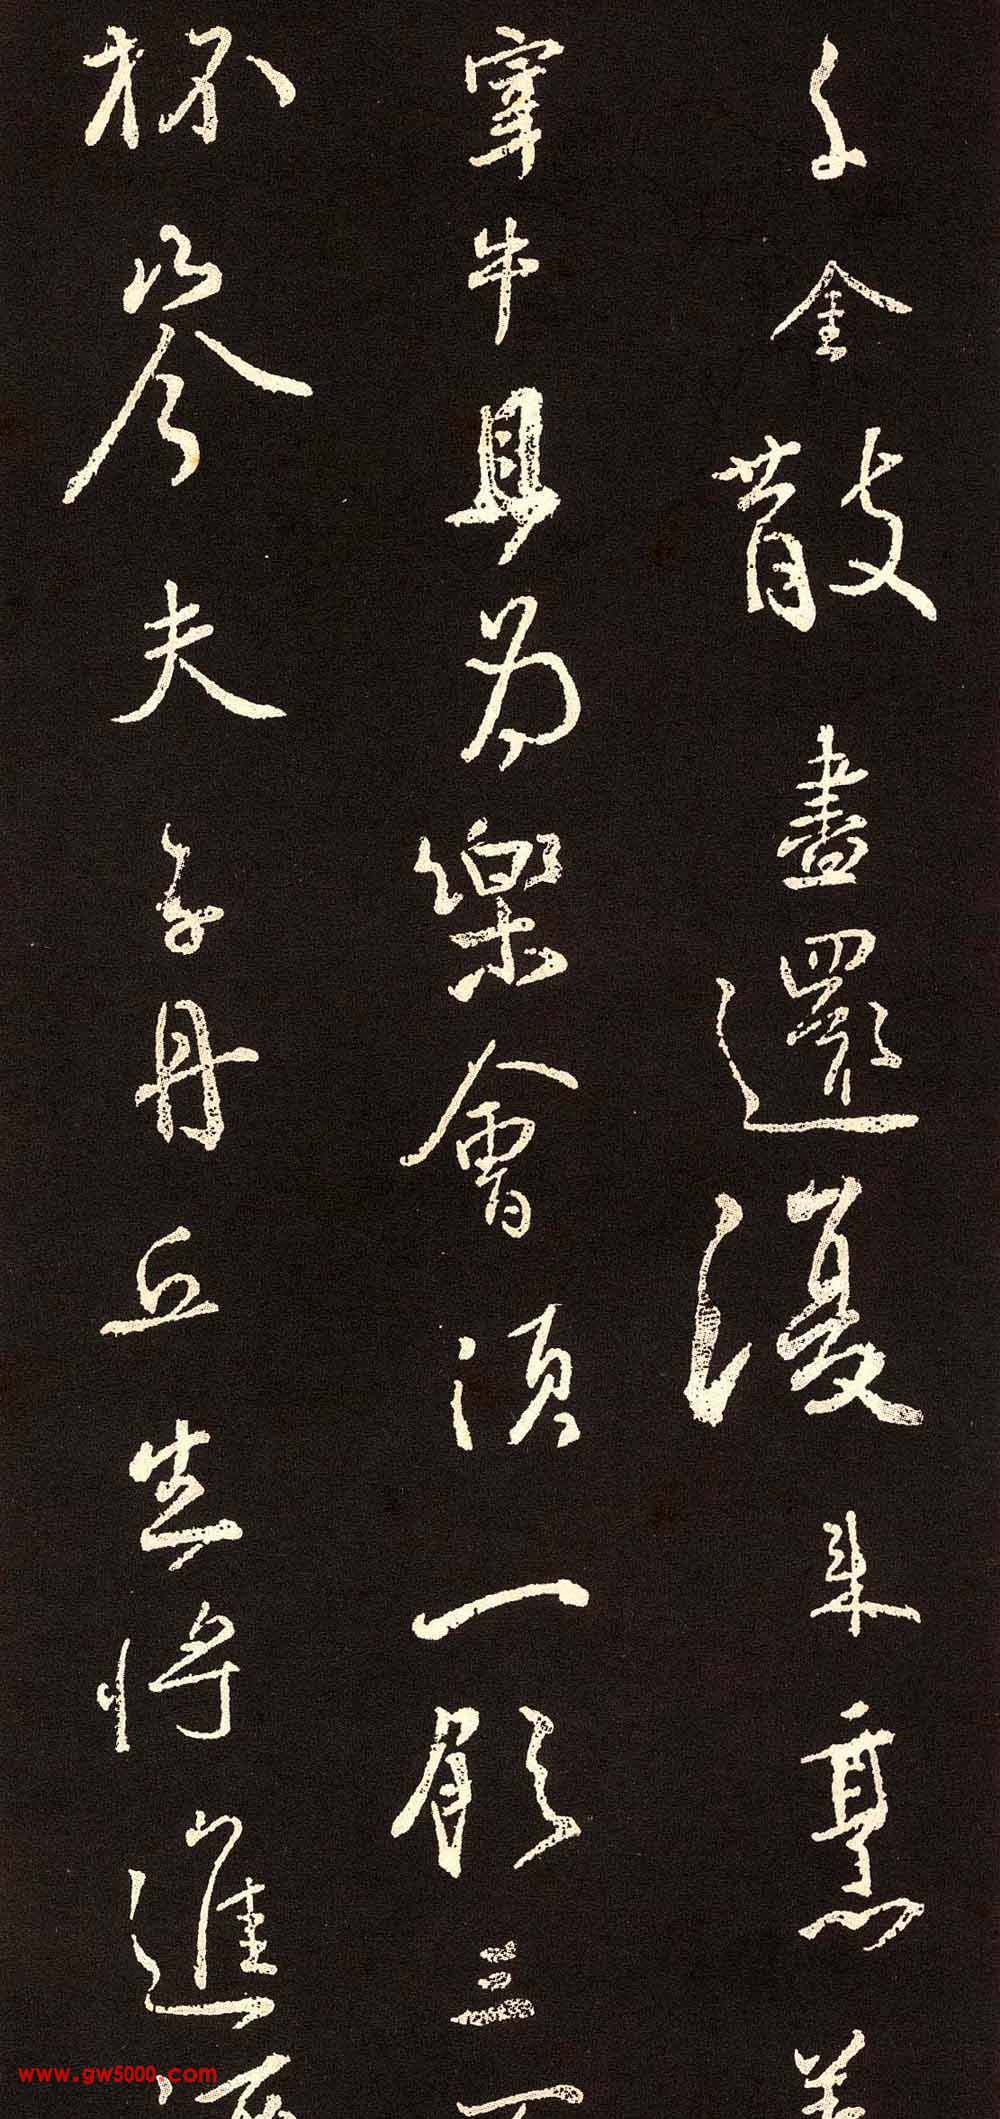 千金散盡還復来烹羊
宰牛且為樂會須一飲三
杯岑夫子丹丘生將進酒
www.gw5000.com